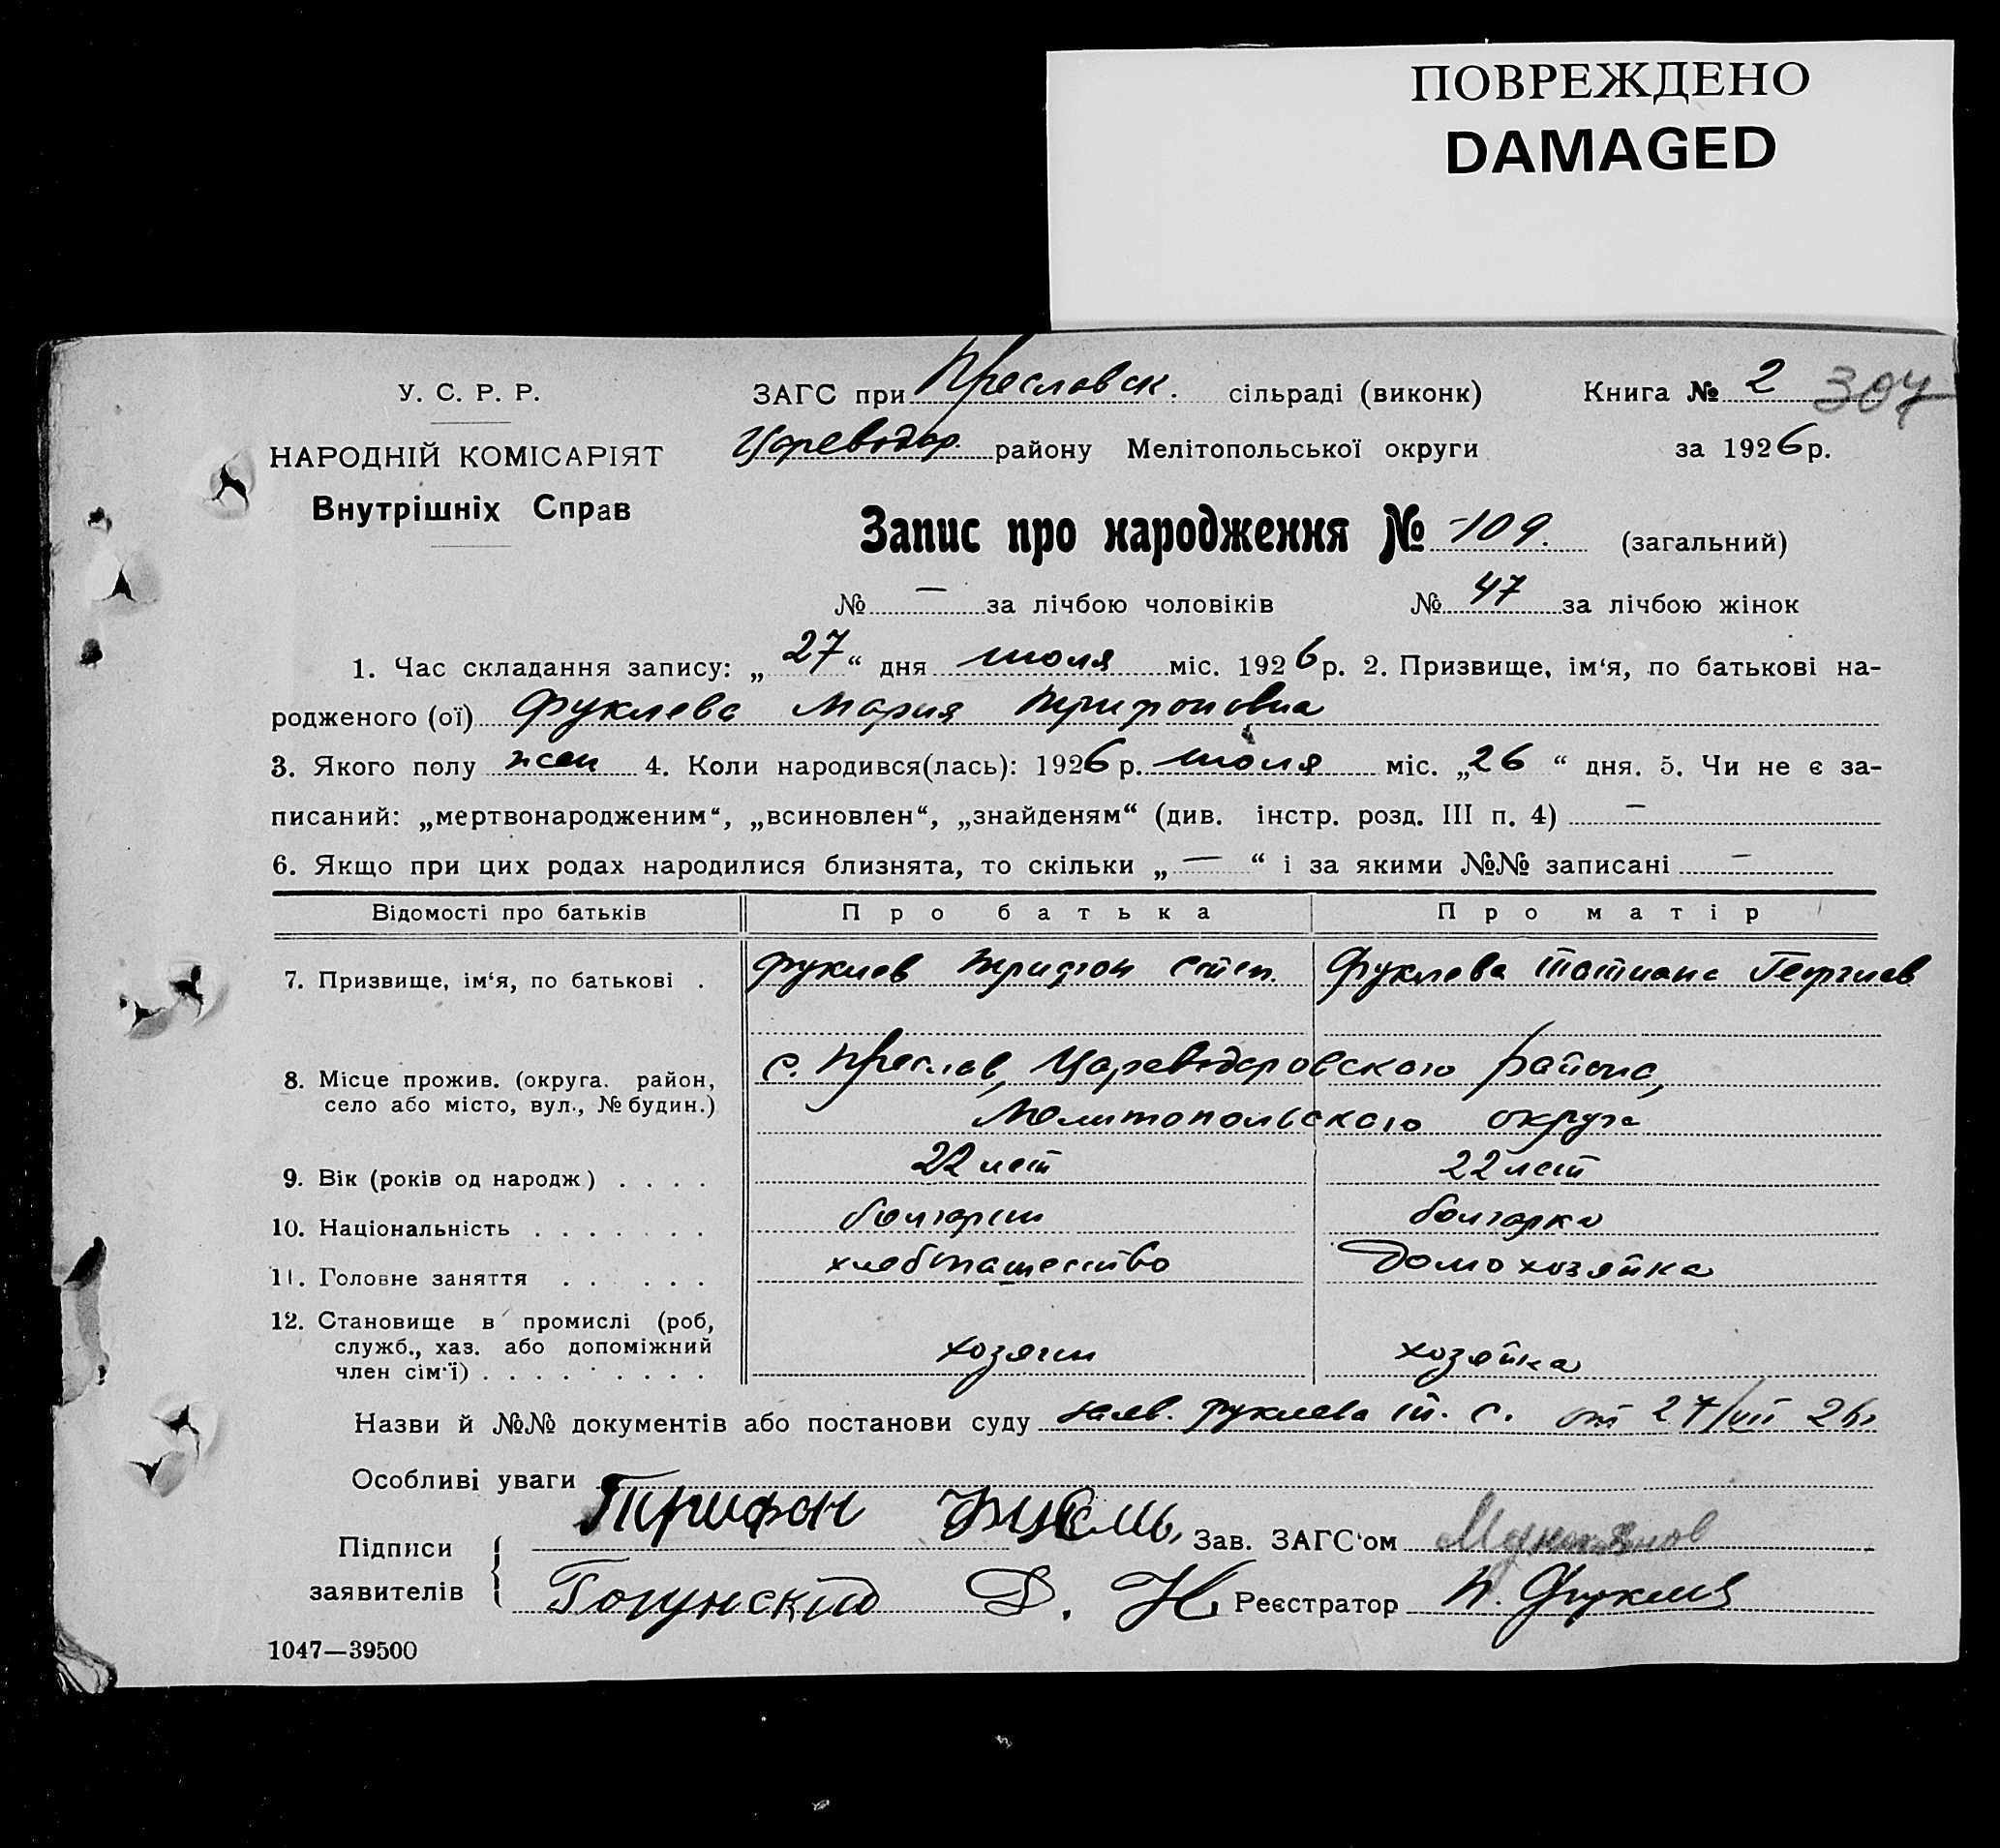 ПОВРЕЖДЕНО
DAMAGED
У. С. Р. Р.
НАРОДНІЙ КОМІСАРІЯТ
Внутрішніх Справ
ЗАГС при Преславск. сільраді (виконк) Книга № 2 307
Цареводар. району Мелітопольської округи за 1926 р.
Запис про народження № 109. (загальний)
№ — за лічбою чоловіків № 47 за лічбою жінок
1. Час складання запису: „27“ дня июля міс. 1926 р. 2. Призвище, ім‘я, по батькові на-
родженого (ої) Фуклева Мария Трифоновна
3. Якого полу жен 4. Коли народився(лась): 1926 р. июля міс. „26“ дня. 5. Чи не є за-
писаний: „мертвонародженим“, „всиновлен“, „знайденям“ (див. інстр. розд. III п. 4) —
6. Якщо при цих родах народилися близнята, то скільки „—“ і за якими №№ записані —
Відомості про батьків Про батька Про матір
7. Призвище, ім‘я, по батькові . Фуклев Трифон Степ. Фуклева Татиана Георгиев
8. Місце прожив. (округа. район, село або місто, вул., № будин.) с. Преслав, Цареводаровского района,
Мелитопольского округа
9. Вік (років од народж) . . . . 22 лет 22 лет
10. Національність . . . . . . . болгарин болгарка
11. Головне заняття . . . . . . хлебопашество домохозяйка
12. Становище в промислі (роб, служб., хаз. або допоміжний член сім‘ї) . . . . . . . . . хозяин хозяйка
Назви й №№ документів або постанови суду заяв. Фуклева Т. С. от 27/VII 26г
Особливі уваги
Підписи заявителів Трифон Зав. ЗАГС‘ом
Д. Н. Реєстратор
1047—39500